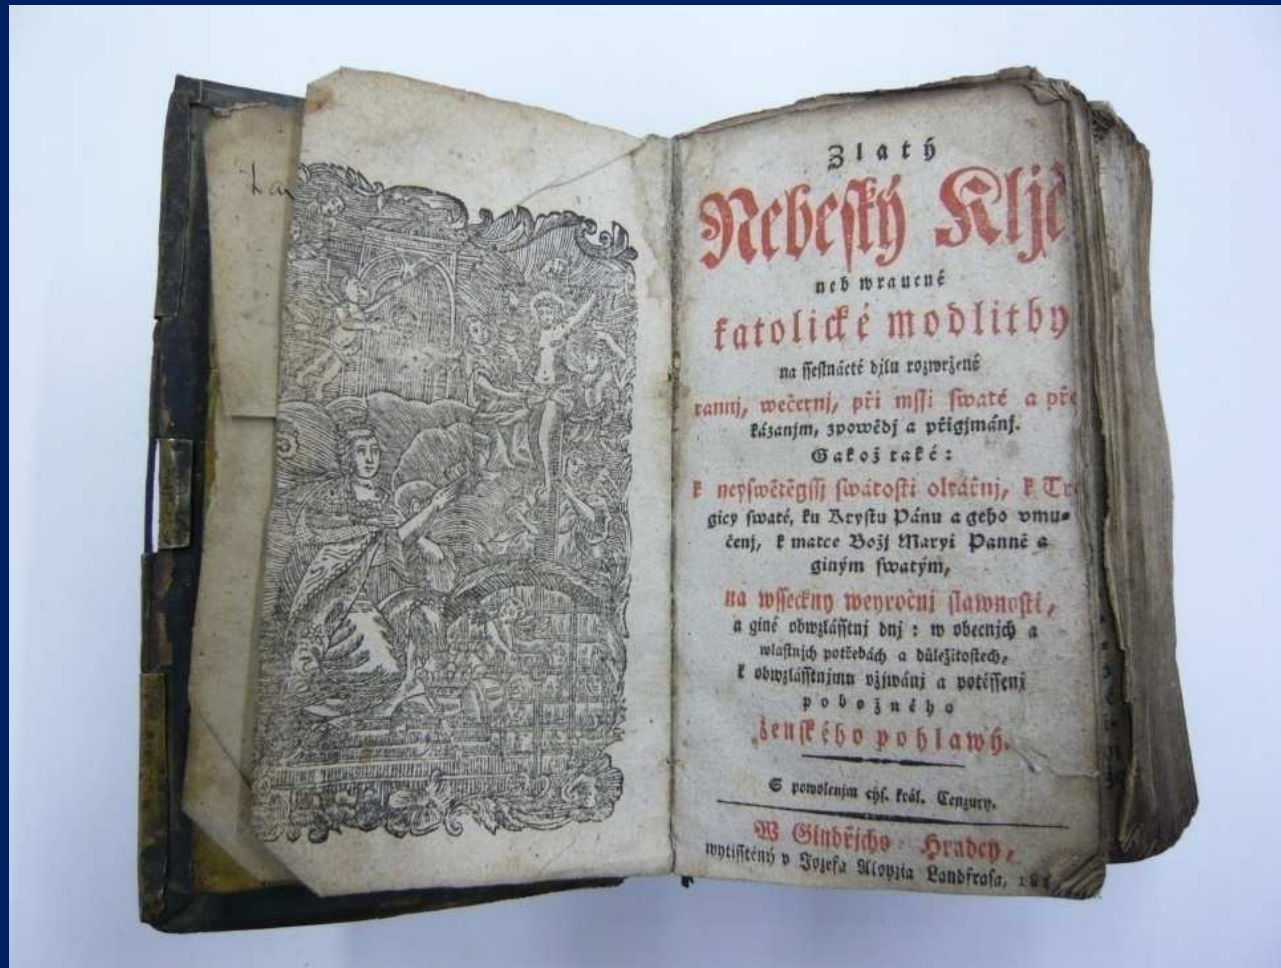 Zlatý
Nebeský Kljč
neb wraucné
katolické modlitby
na ssestnácté djlu rozwržené
rannj, wečernj, při mssi swaté a pře
kázanjm, zpowědj a přigjmánj.
Gakož také:
k neyswětěgssj swátosti oltářnj, k Tro
gicy swaté, ku Krystu Pánu a geho vmu-
čenj, k matce Božj Maryi Panně a
giným swatým,
na wsseckny weyročnj slawnosti,
a giné obwzlásstnj dnj: w obecnjch a
wlastnjch potřebách a důležitostech,
k obwzlásstnjmu vžjwánj a potěssenj
pobožného
ženského pohlawý.
S powolenjm cýs. král. Cenzury.
W Gindřichò Hradcy,
wytisstěný v Jozefa Aloyzia Landfrasa,